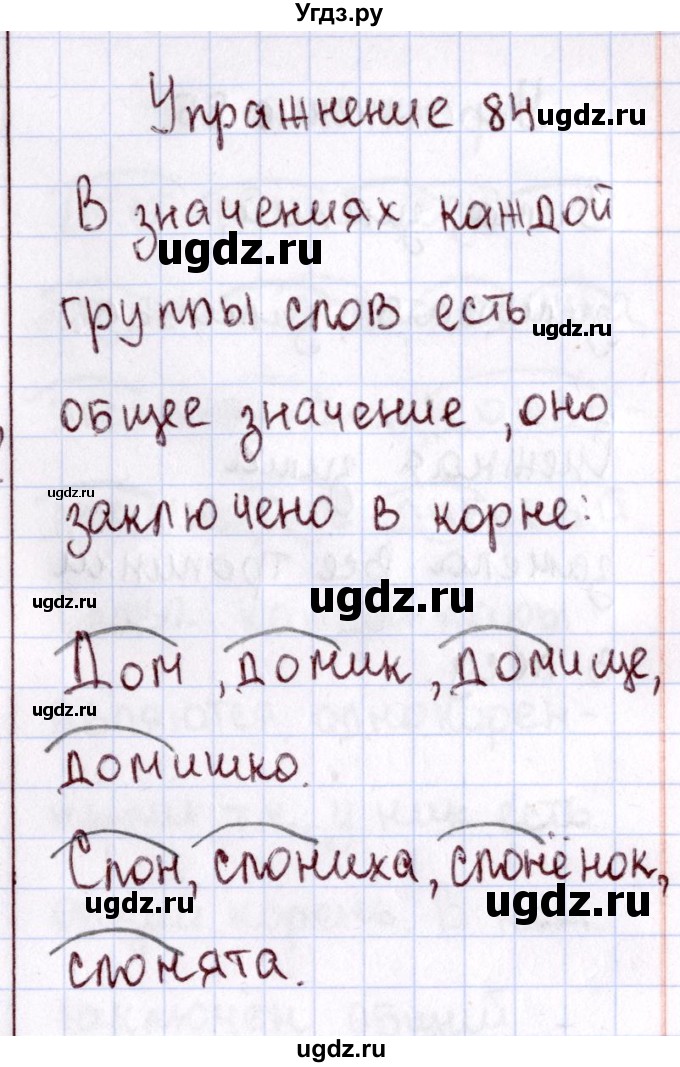 Угдз.ру
Упражнение 84
ugdz.ru
В значениях каждой
ugdz.ru
группы слов есть
ugdz.ru
общее значение, оно
ugdz.ru
заключено в корне:
ugdz.ru
ugdz.ru
Дом, домик, домище,
ugdz.ru
домишко.
Слон, слониха, слонёнок,
ugdz.ru
ugdz.ru
слонята.
ugdz.ru